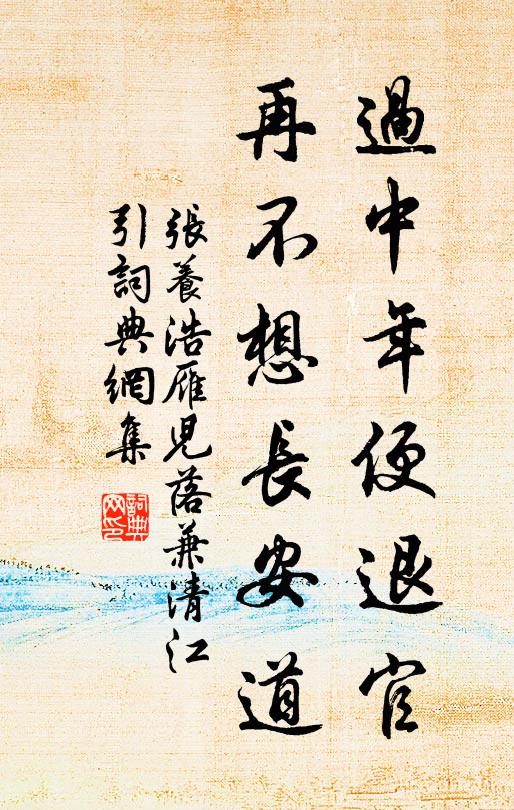 過中年便退官
再不想長安道
張養浩雁兒落兼清江
引詞典網集
詞典網